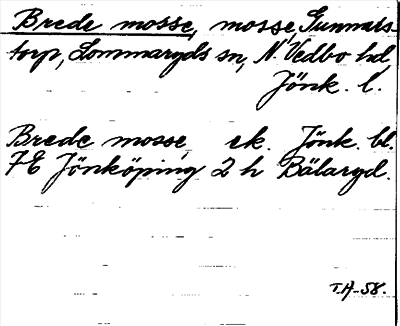 Brede mosse, mosse, Gunnars-
torp, Lommaryds sn, N. Vedbo hd,
Jönk. l.
Brede mosse, ek. Jönk. bl.
7E Jönköping 2 h Bälaryd.
T.H-58.